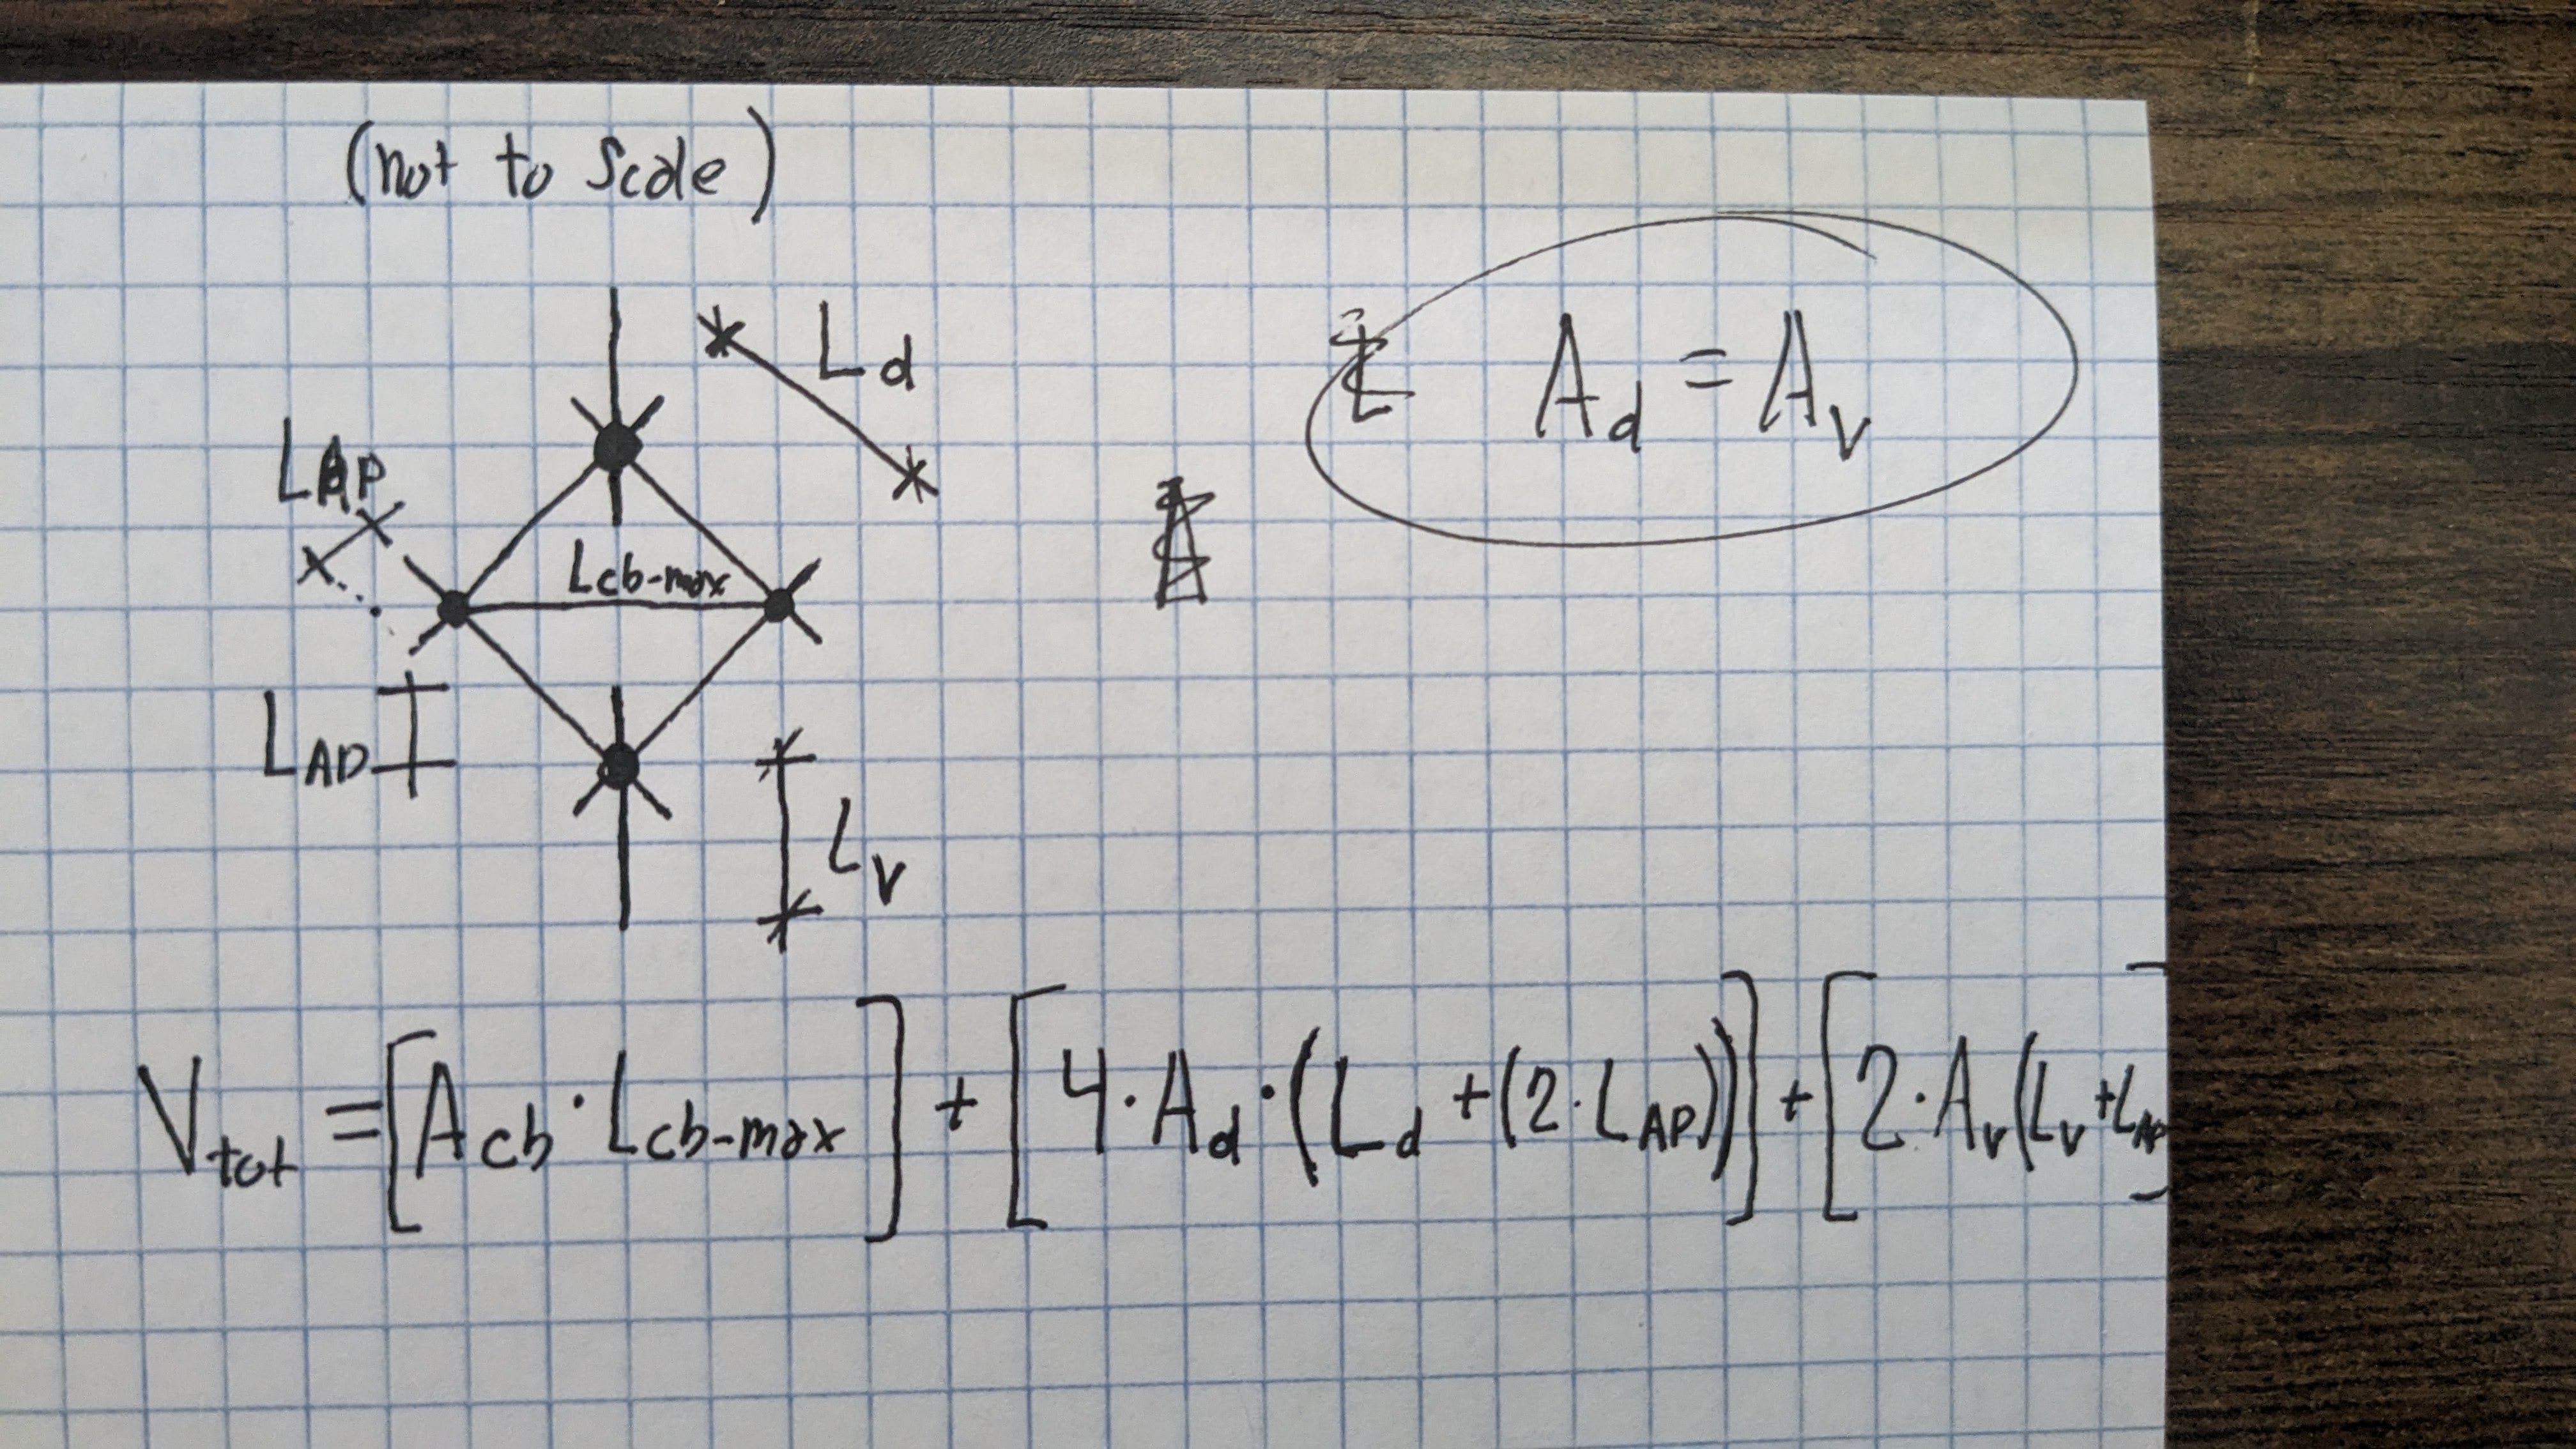 (not to scale)
Ld
Ad = Av
LAP
Lcb-max
LAD
Lv
Vtot = [Acb · Lcb-max] + [4 · Ad · (Ld + (2 · LAP))] + [2 · Av (Lv + LAP]